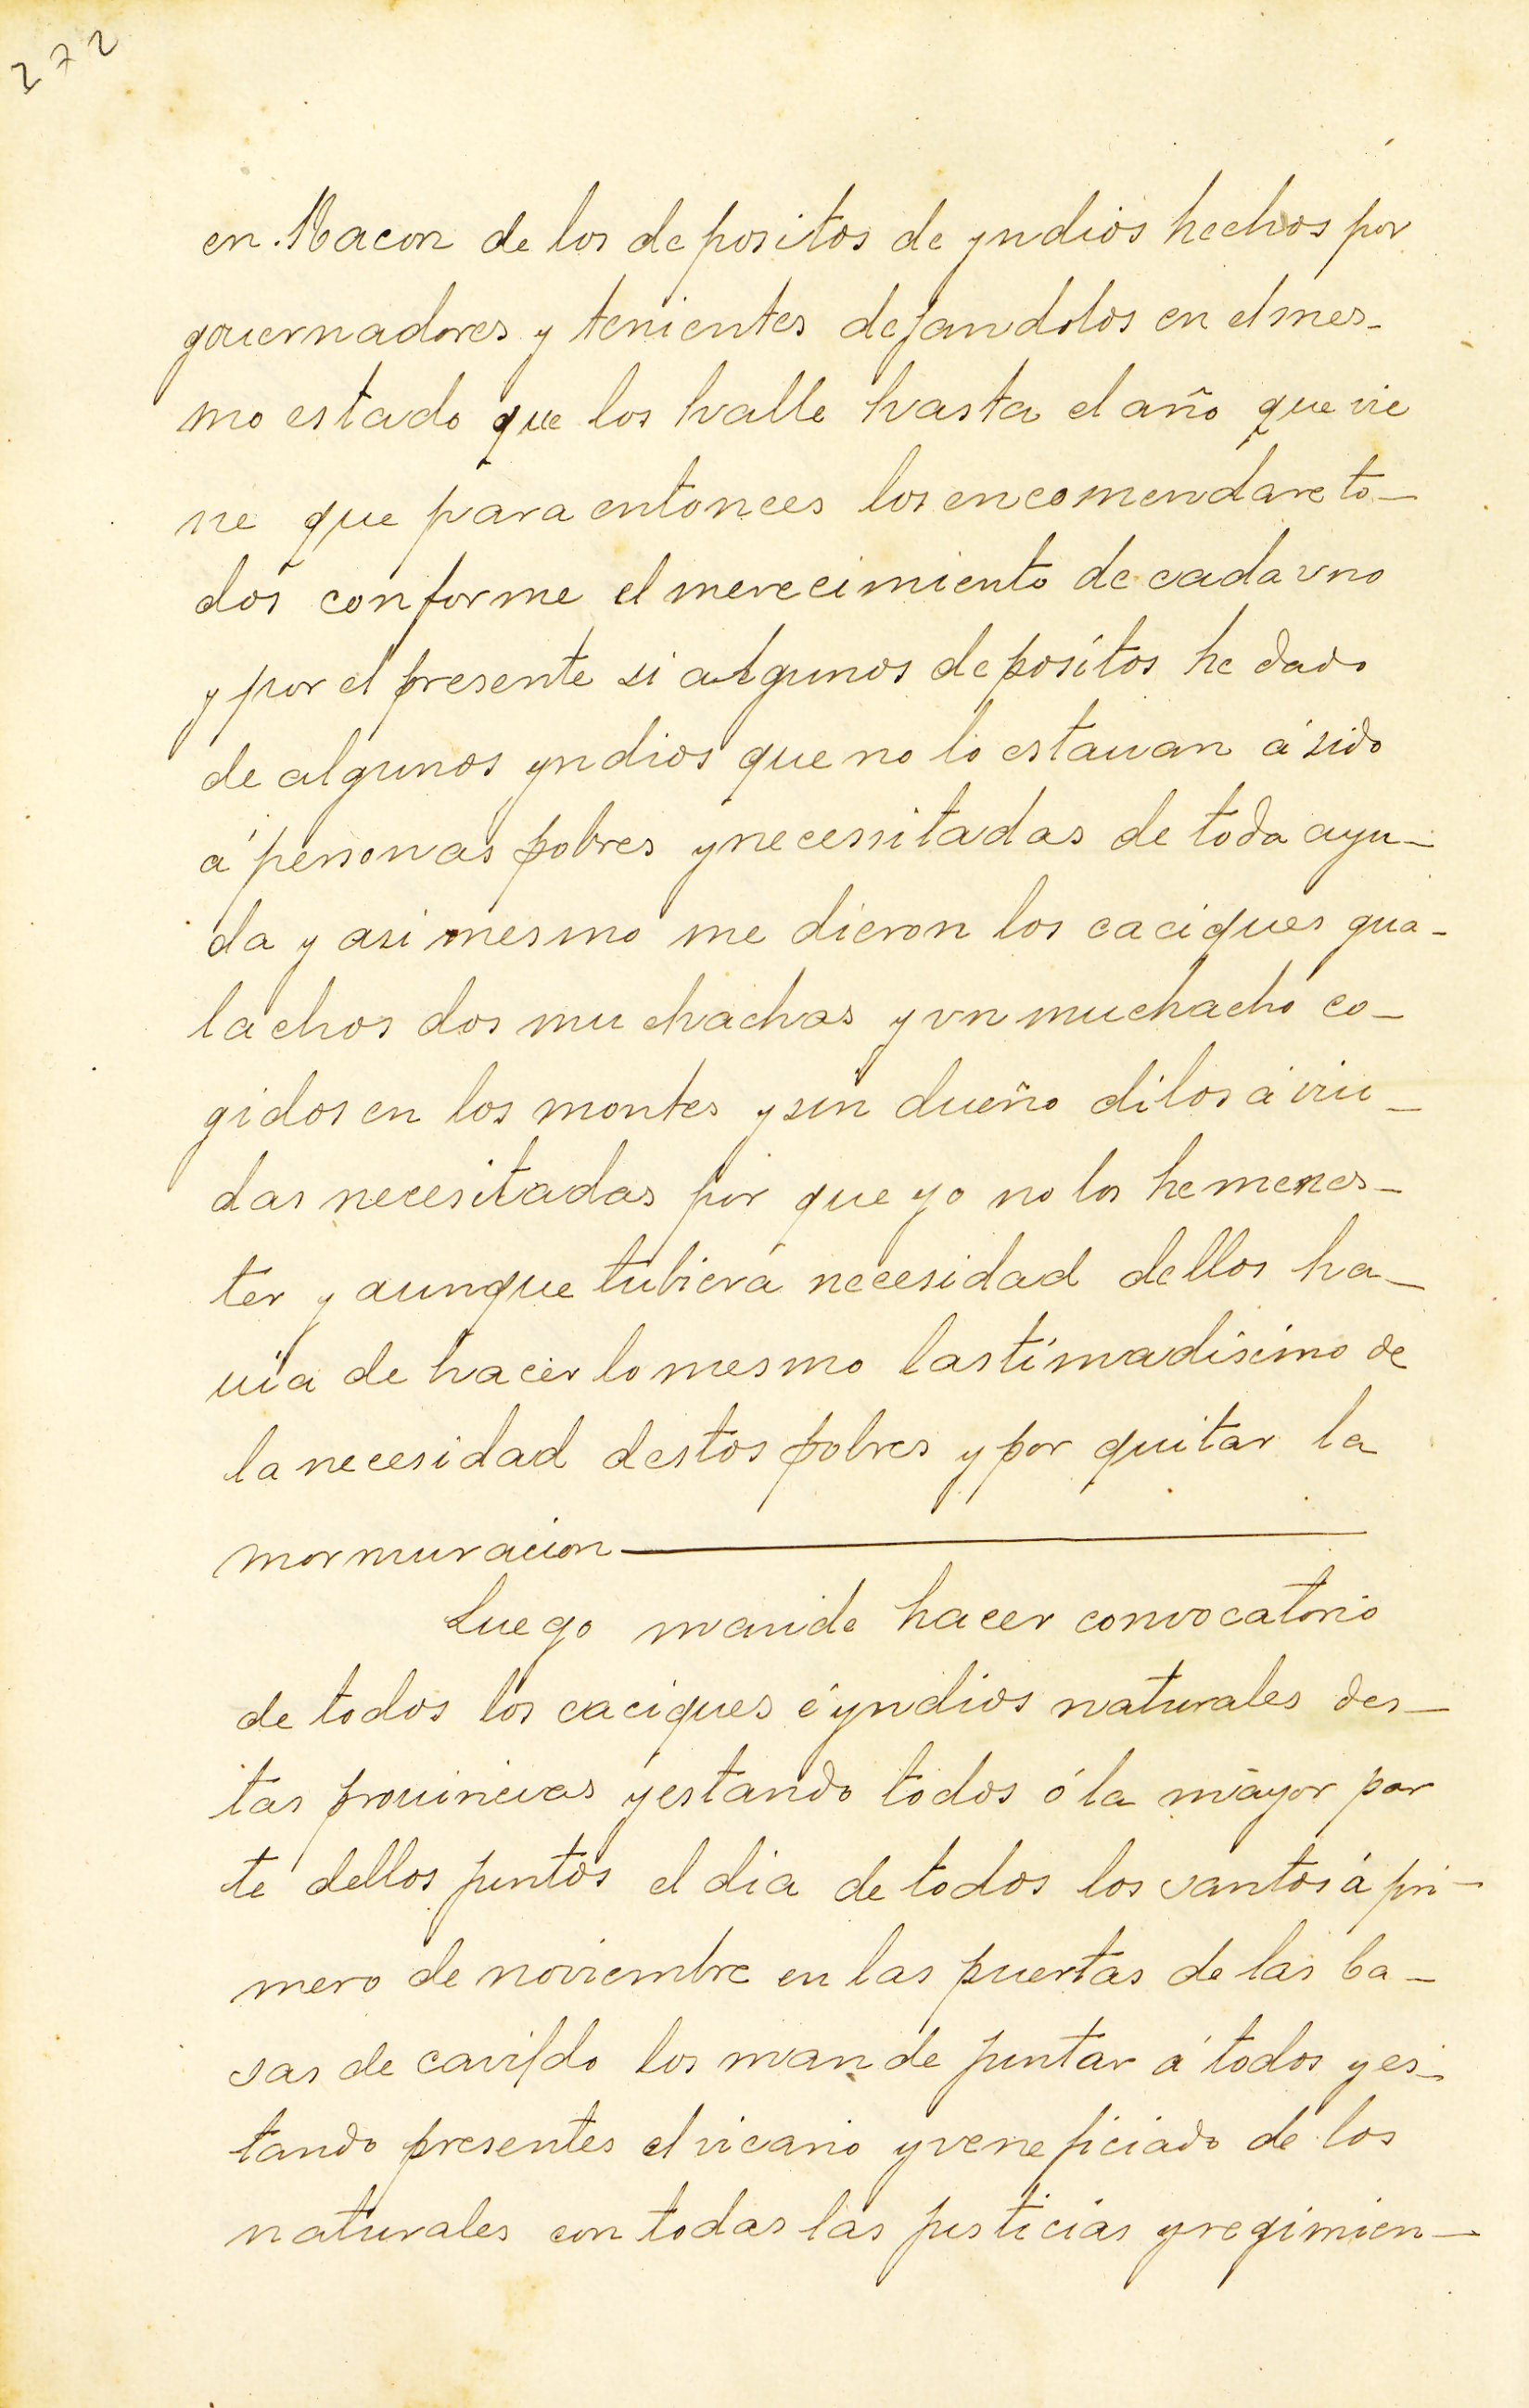 272
en Racon de los depositos de yndios hechos por
gouernadores y tenientes dejandolos en el mes-
mo estado que los halle hasta el año que vie
ne que para entonces los encomendare to-
dos conforme el merecimiento de cada vno
y por el presente si algunos depositos he dado
de algunos yndios que no lo estauan á sido
á personas pobres y necessitadas de toda ayu-
da y asi mesmo me dieron los caciques gua-
lachos dos muchachas y vn muchacho co-
gidos en los montes y sin dueño dilos á viu-
das necesitadas por que yo no los he menes-
ter y aunque tubiera necesidad dellos ha-
uia de hacer lo mesmo lastimadisimo de
la necesidad destos pobres y por quitar la
mormuracion
Luego mande hacer convocatorio
de todos los caciques é yndios naturales des-
tas prouincias y estando todos ó la mayor par
te dellos juntos el dia de todos los santos á pri-
mero de noviembre en las puertas de las ca-
sas de cavildo los mande juntar á todos y es-
tando presentes el vicario y veneficiado de los
naturales con todas las justicias y regimien-